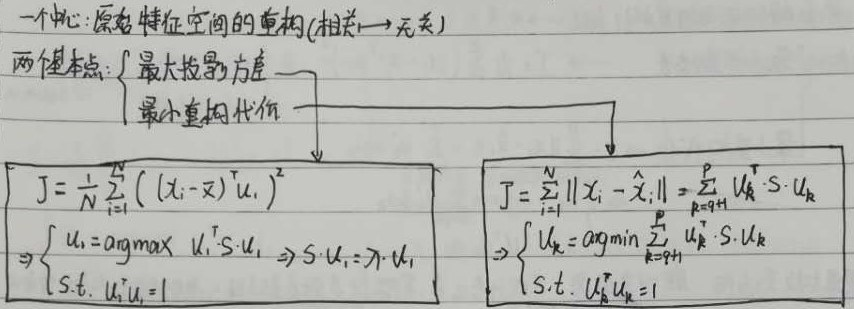 一个中心:原始特征空间的重构(相关↦无关)
两个基本点:{ 最大投影方差
最小重构代价
J = 1/N ∑_{i=1}^{N} ( (x_i - x̄)^T u_1 )^2
⇒ { u_1 = argmax u_1^T·S·u_1 ⇒ S·u_1 = λ·u_1
s.t. u_1^T u_1 = 1
J = ∑_{i=1}^{N} ‖x_i - x̂_i‖ = ∑_{k=q+1}^{P} u_k^T·S·u_k
⇒ { u_k = argmin ∑_{k=q+1}^{P} u_k^T·S·u_k
s.t. u_k^T u_k = 1